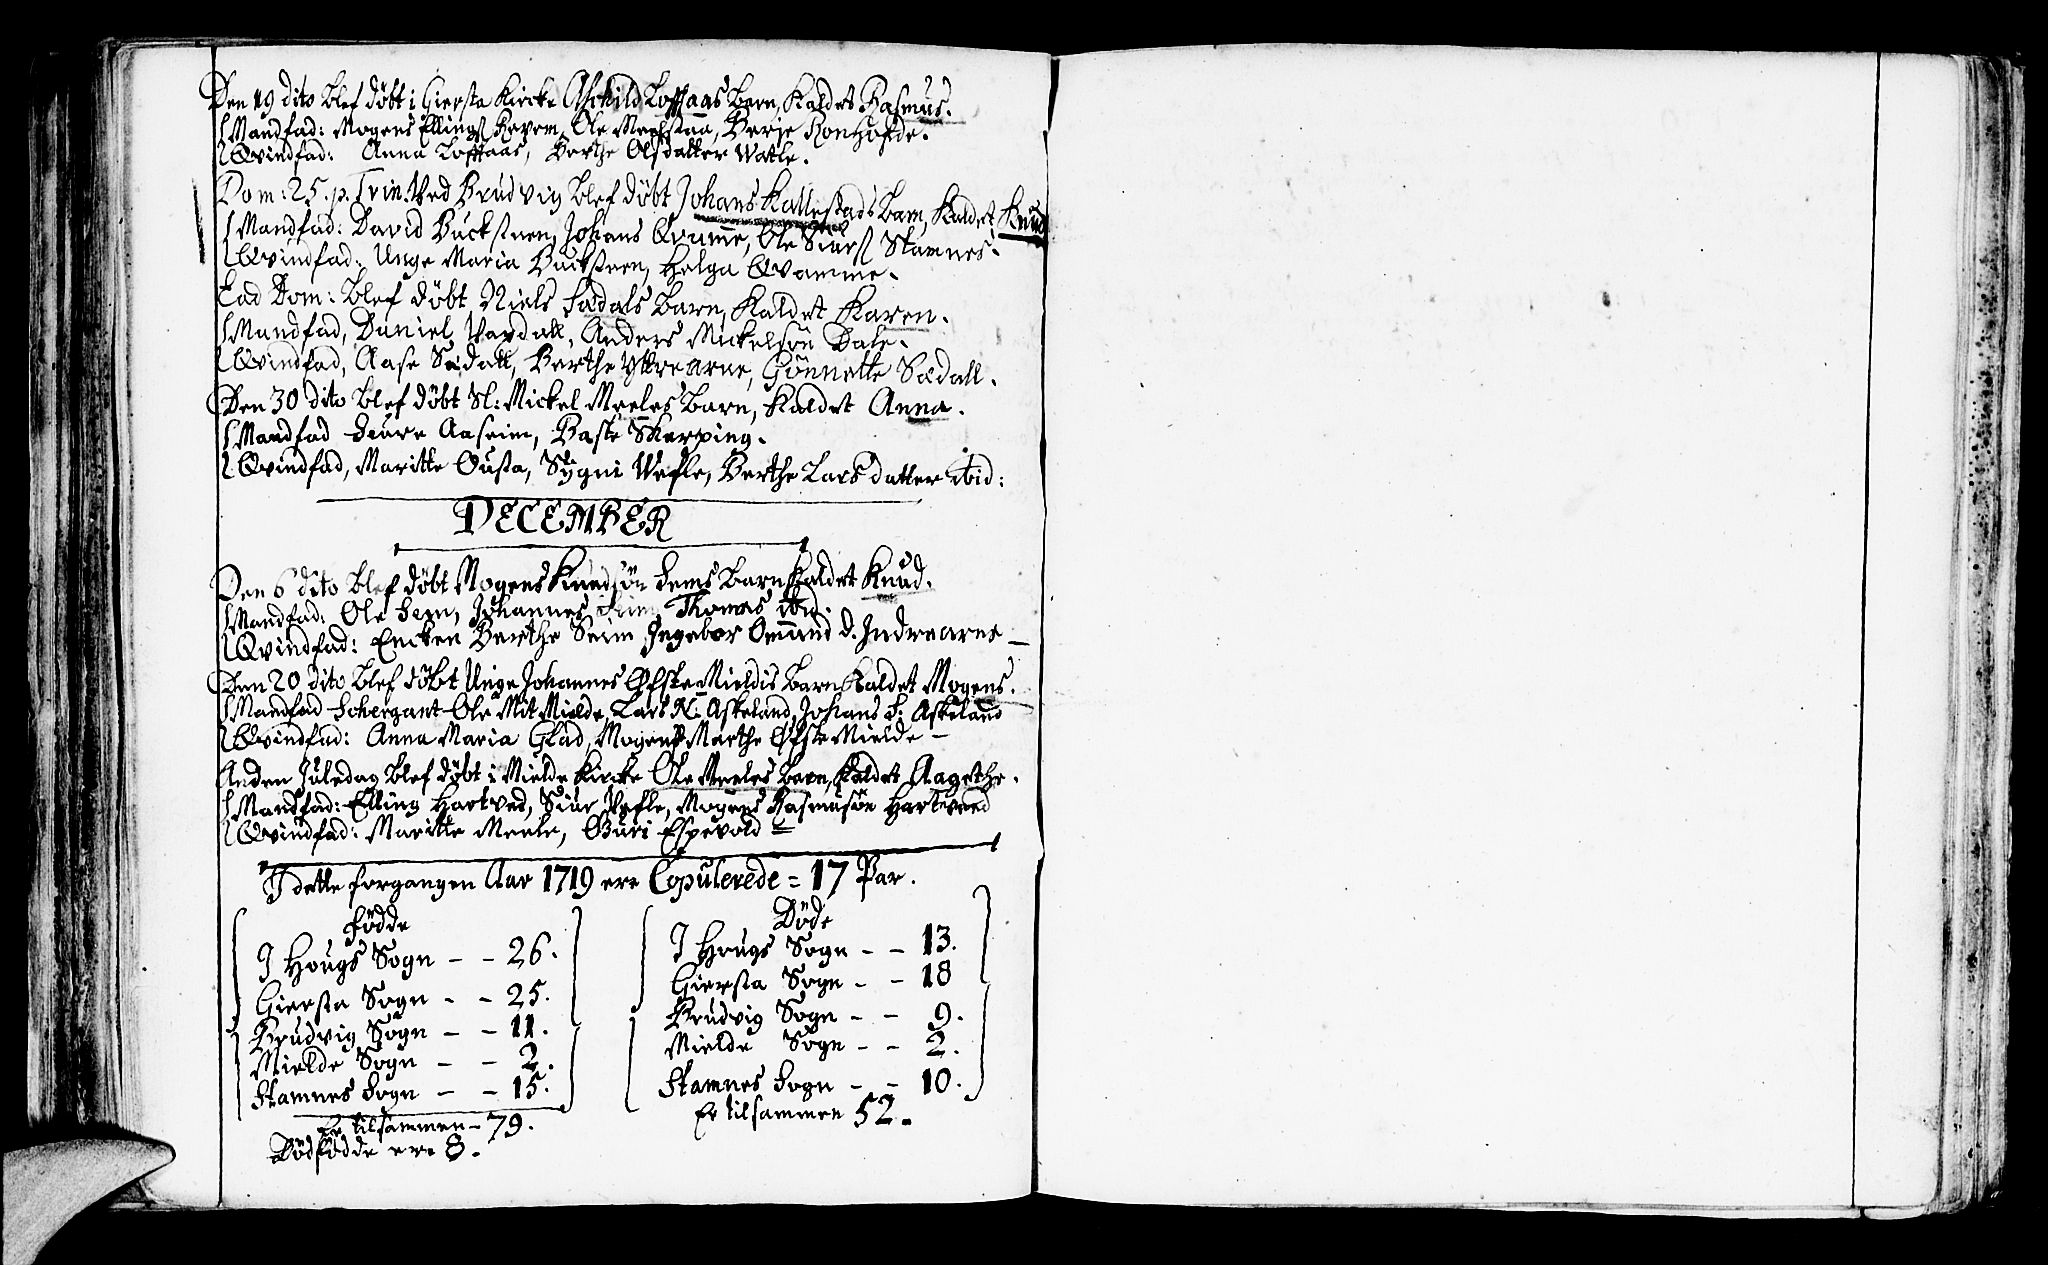 Den 19 dito blef döbt i Giersta Kircke Aschild Lofftaas barn, Kaldet Rasmus.
Mandfad: Mogens Ellings Revem, Ole Mechstaa, Berje Ronhofde.
Qvindfad: Anna Lofftaas, Berthe Olsdatter Watle.
Dom: 25. p. Trin. Ved Brudvig blef döbt Johans Kallestads barn, Kaldet Knud
Mandfad: David Buckstnen, Johans Qvamme, Ole Siurs Stamnes.
Qvindfad: Unge Maria Bucksteen, Helga Qvamme.
Ead Dom: blef döbt Niels Sædals barn, Kaldet Karen.
Mandfad, Daniel Vardall, Anders Mickelsön Dale.
Qvindfad, Aase Sædall, Berthe Yttrearne, Gönnette Sædall.
Den 30 dito blef döbt Sl: Mickel Meeles barn, Kaldet Anna.
Mandfad Siure Aaseim, Baste Skerping.
Qvindfad, Maritte Ousta, Sygni Vefle, Berthe Larsdatter ibid:
DECEMBER
Den 6 dito blef döbt Mogens Knudsön Sems barn Kaldet Knud.
Mandfad: Ole Sem, Johannes Thomas ibid.
Qvindfad: Encken Berthe Seim Ingebor Omund d. Indrearne
Den 20 dito blef döbt Unge Johannes Øfste Mieldis barn Kaldet Mogens.
Mandfad Schergant Ole Mit Mielde, Lars N: Askeland, Johans S: Askeland
Qvindfad: Anna Maria Glad, Mogens Marthe Øfste Mielde
Anden Juledag blef döbt i Mielde Kircke Ole Meeles barn, Kaldet Aagethe.
Mandfad: Elling Hartved, Siur Vefle, Mogens Rasmusön Hartveed
Qvindfad: Maritte Meele, Guri Espevold
I dette forgangen Aar 1719 ere Copulerede = 17 Par.
födde
I Hougs Sogn - - 26.
Giersta Sogn - - 25.
Brudvig Sogn - - 11.
Mielde Sogn - - 2.
Stamnes Sogn - - 15.
Er tilsammen - 79.
Dödfödde ere 8.
Döde
I Hougs Sogn - - 13.
Giersta Sogn - - 18
Brudvig Sogn - - 9.
Mielde Sogn - - 2.
Stamnes Sogn - - 10.
Er tilsammen 52.